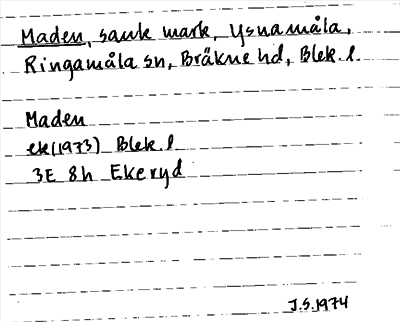 Maden, sank mark, Ysnamåla,
Ringamåla sn, Bräkne hd, Blek. l.
Maden
ek (1973) Blek. l
3E 8h Ekeryd
J.S. 1974